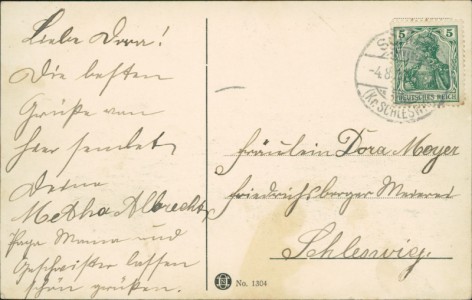 Liebe Dora!
Die besten
Grüße von
hier sendet
Deine
Metha Albrecht
Papa Mama und
Geschwister lassen
schön grüßen.
Fräulein Dora Meyer
Friedrichsberger Meierei
Schleswig.
5 5
DEUTSCHES REICH
-4.8.
(Kr. SCHLESW
No. 1304